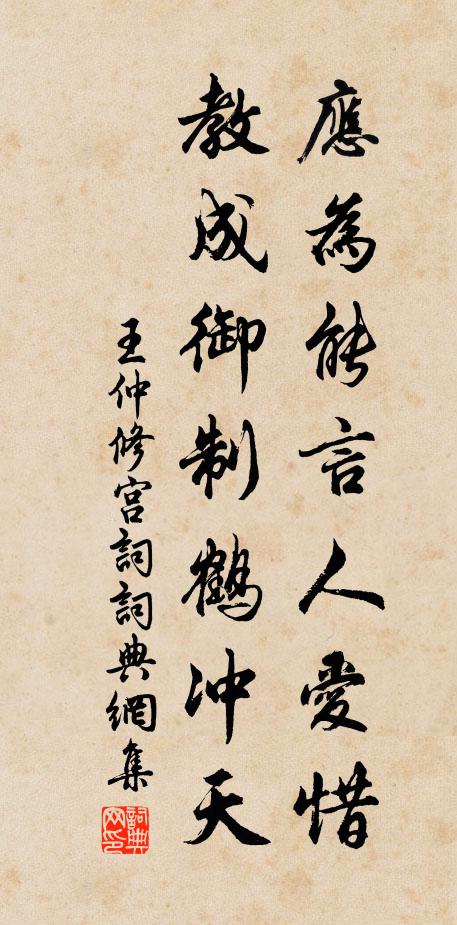 應為能言人愛惜
教成御制鶴冲天
王仲修宮詞詞典網集
詞典
网印